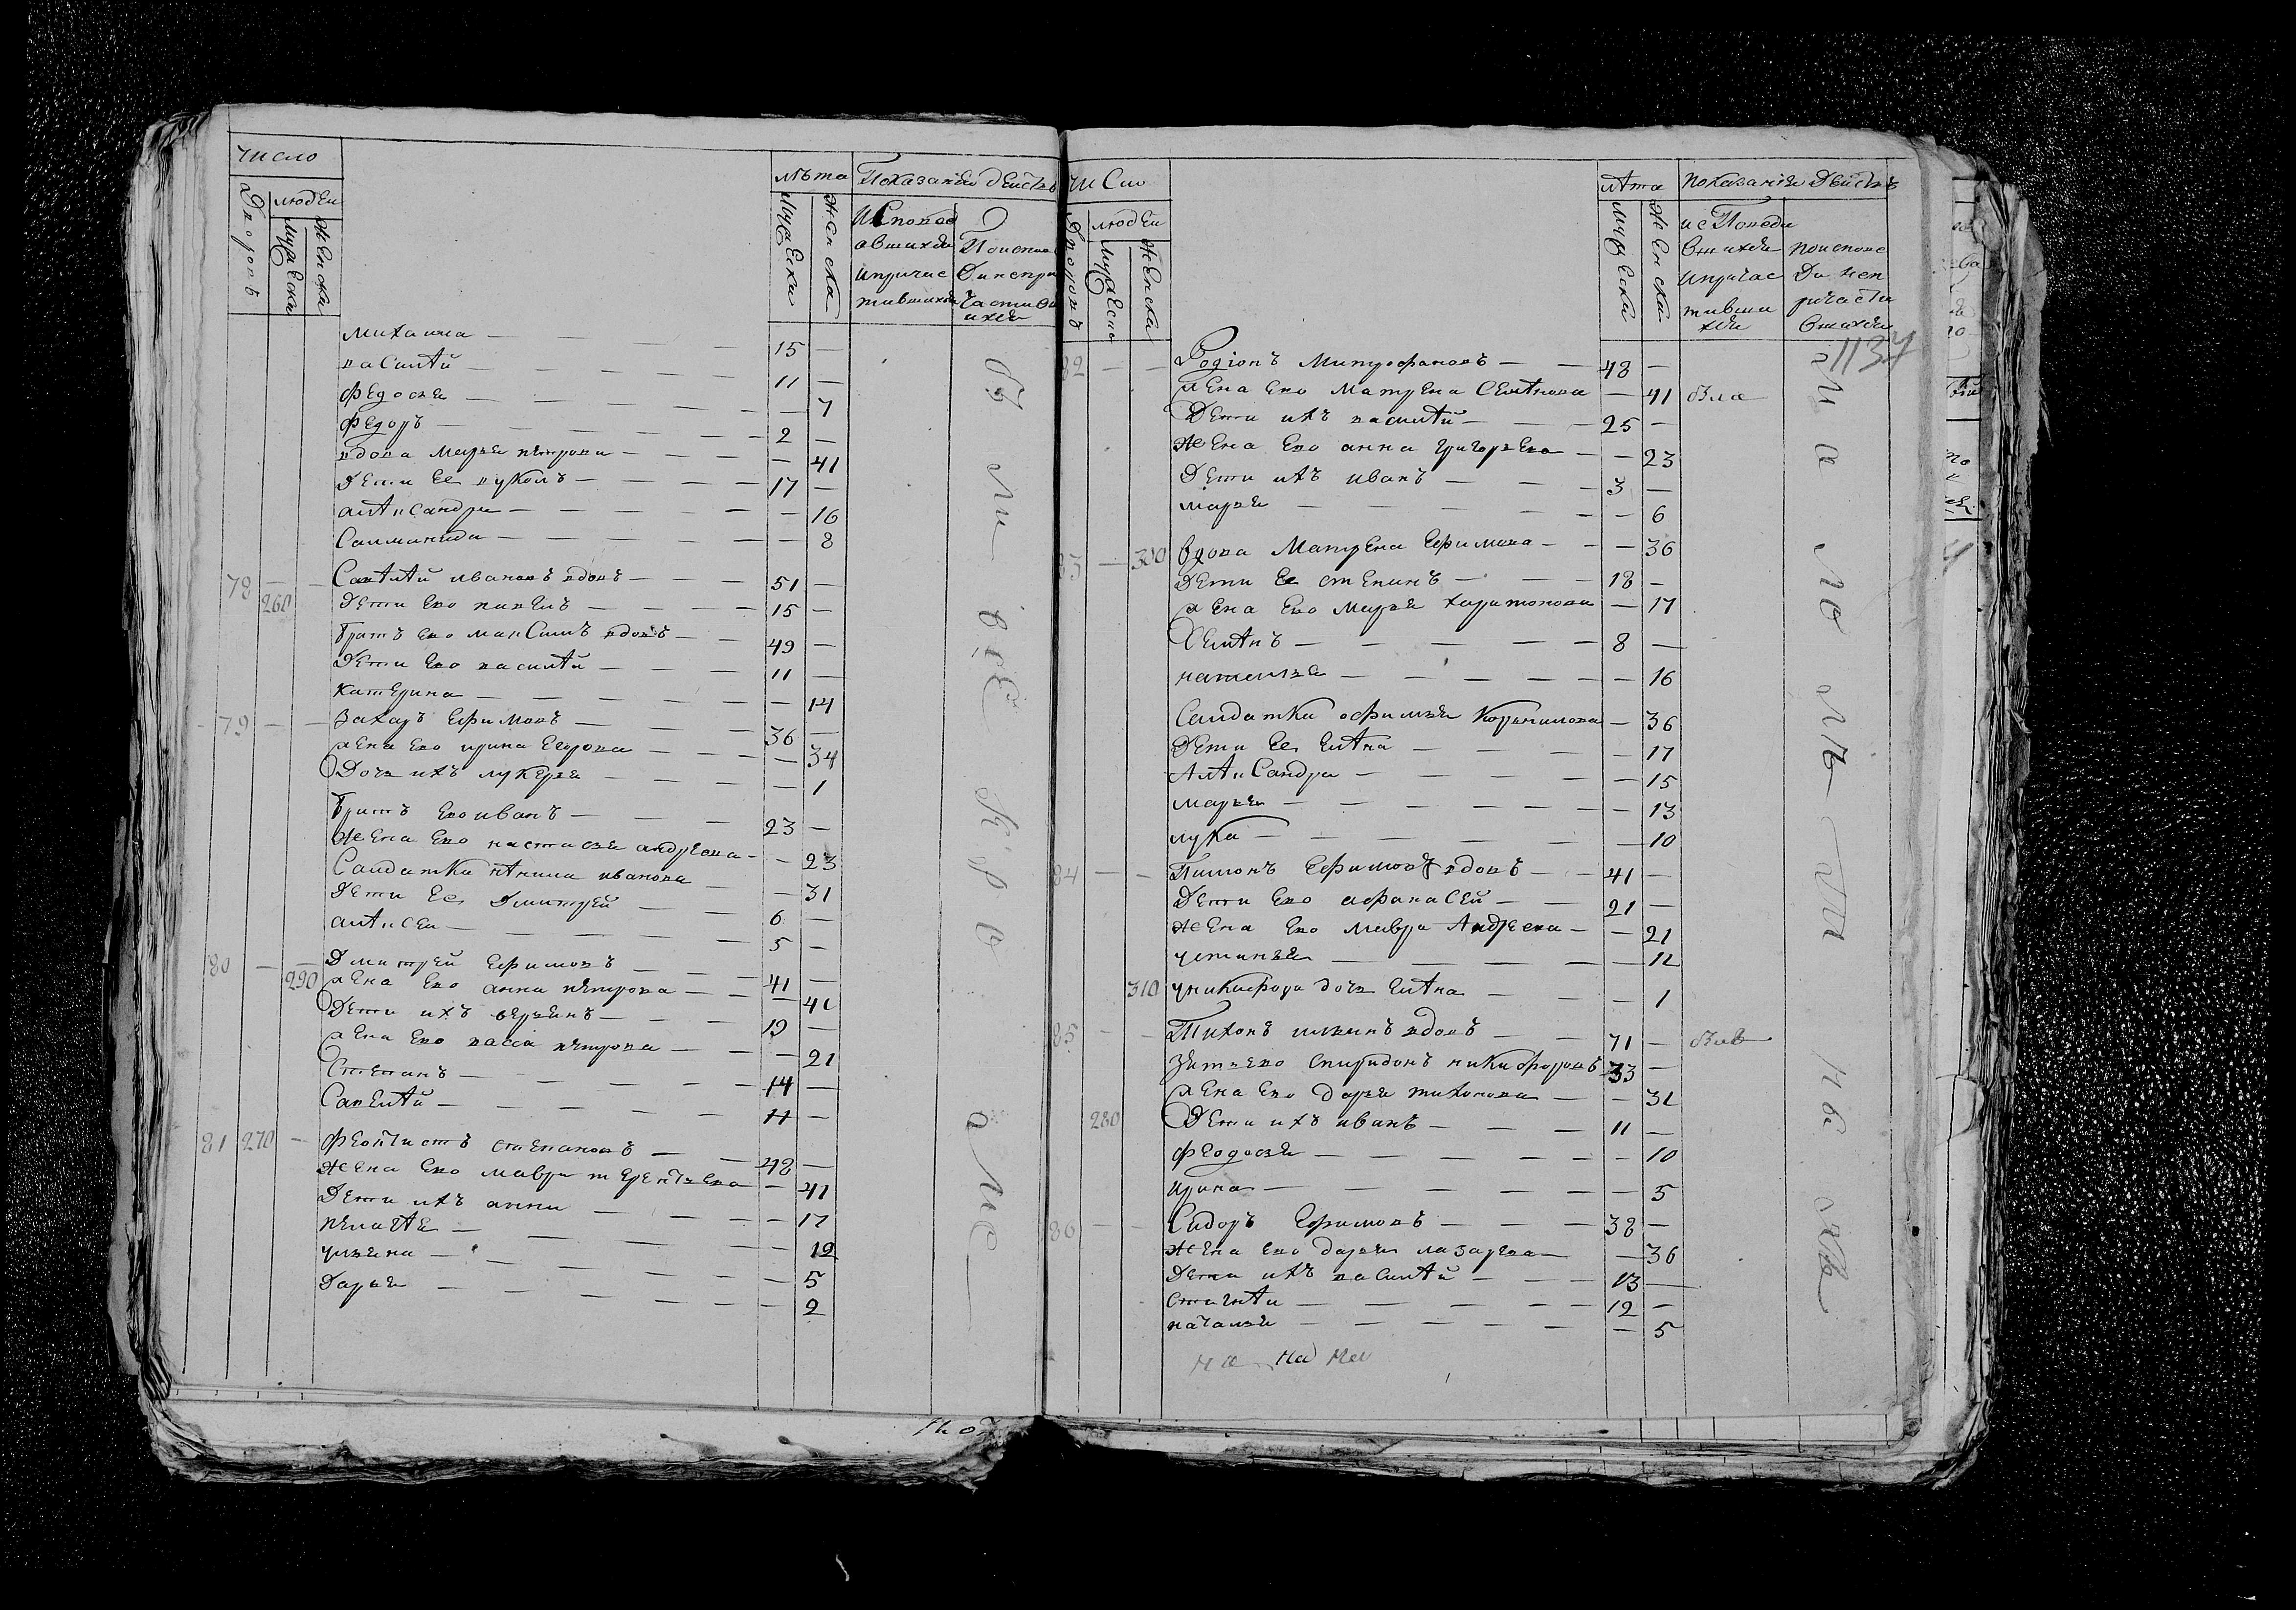 число
лѣта Показание дейстъв
Дворовъ людей
мужеска женска
мужеска женска
Исповед
авшихся
ипричас
тившихся
Поиспове
Дненепри
частив
ихся
михаила — 15 —
василѣй — 11 —
федосья — — 7
федоръ — 2 —
вдова марья петрова — — 41
Дети Ее вуколъ — 17 —
алѣксандра — — 16
Саламанида — — 8
78 — — Савѣлѣй ивановъ вдовъ — 51 —
260 Дети Ево павелъ — 15 —
братъ Ево максимъ вдовъ — 49 —
Дети Ево василѣй — 11 —
катерина — — 14
79 — — Захаръ Ефимовъ — 36 —
жена Ево ирина Егорова — — 34
Дочь ихъ лукерья — — 1
братъ Ево иванъ — 23 —
Жена Ево настасья андреева — — 23
Салдатка иванова — — 31
Дети Ее Дмитрей — 6 —
алѣксей — 5 —
80 — — Дмитрей Ефимовъ — 41 —
290 жена Ево анна петрова — — 41
Дети ихъ — 19 —
жена Ево васса петрова — — 21
Степанъ — 14 —
Савелѣй — 11 —
81 270 — феоктистъ степановъ — 48 —
Жена Ево мавра терентьева — — 41
Дети ихъ анна — — 17
пелагѣя — — 12
ульяна — — 5
Дарья — — 2
Число
лѣта показание Дейстъ
Дворовъ людей
мужеска женска
мужеска женска
исПоведа
вшихся
ипричас
тивши
хся
поиспове
Дненеп
ричасти
вшихся
1137
82 — — Родіонъ Митрофановъ — 48 —
жена Ево Матрена Семѣнова — — 41
Дети ихъ василѣй — 25 —
Жена Ево анна григорьева — — 23
Дети ихъ иванъ — 3 —
марья — — 6
83 — 300 вдова Матрена Ефимова — — 36
Дети Ее степанъ — 18 —
жена Ево марья харитонова — — 17
Семѣнъ — 8 —
наталья — — 16
Салдатка офимья Корнилова — — 36
Дети Ее Елѣна — — 17
Алѣксандра — — 15
марья — — 13
лука — — 10
84 — — Пимонъ Ефимовъ вдовъ — 41 —
Дети Ево афанасей — 21 —
жена Ево мавра Андреева — — 21
устинья — — 12
310 уникифора дочь Елѣна — — 1
85 — — Тихонъ ильинъ вдовъ — 71 —
Зять Ево спиридонъ никифоровъ 33 —
жена Ево дарья тихонова — — 31
280 Дети ихъ иванъ — 11 —
феодосья — — 10
ирина — — 5
86 — — Сидоръ Ефимовъ — 38 —
жена Ево дарья лазарева — — 36
Дети ихъ василѣй — 13 —
— 12 —
наталья — — 5